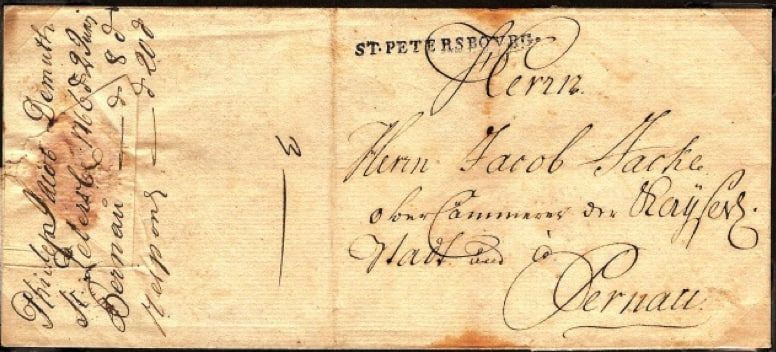 ST.PETERSBOVRG.
Herrn
Herrn Jacob Jacke
ober Cämmerer der Kayserl.
Stadt und
Pernau
3
Philip Jacob Demuth
St. Petersb. 1766 d 2 Juni
Pernau — d 8 d
respond — d 20 d